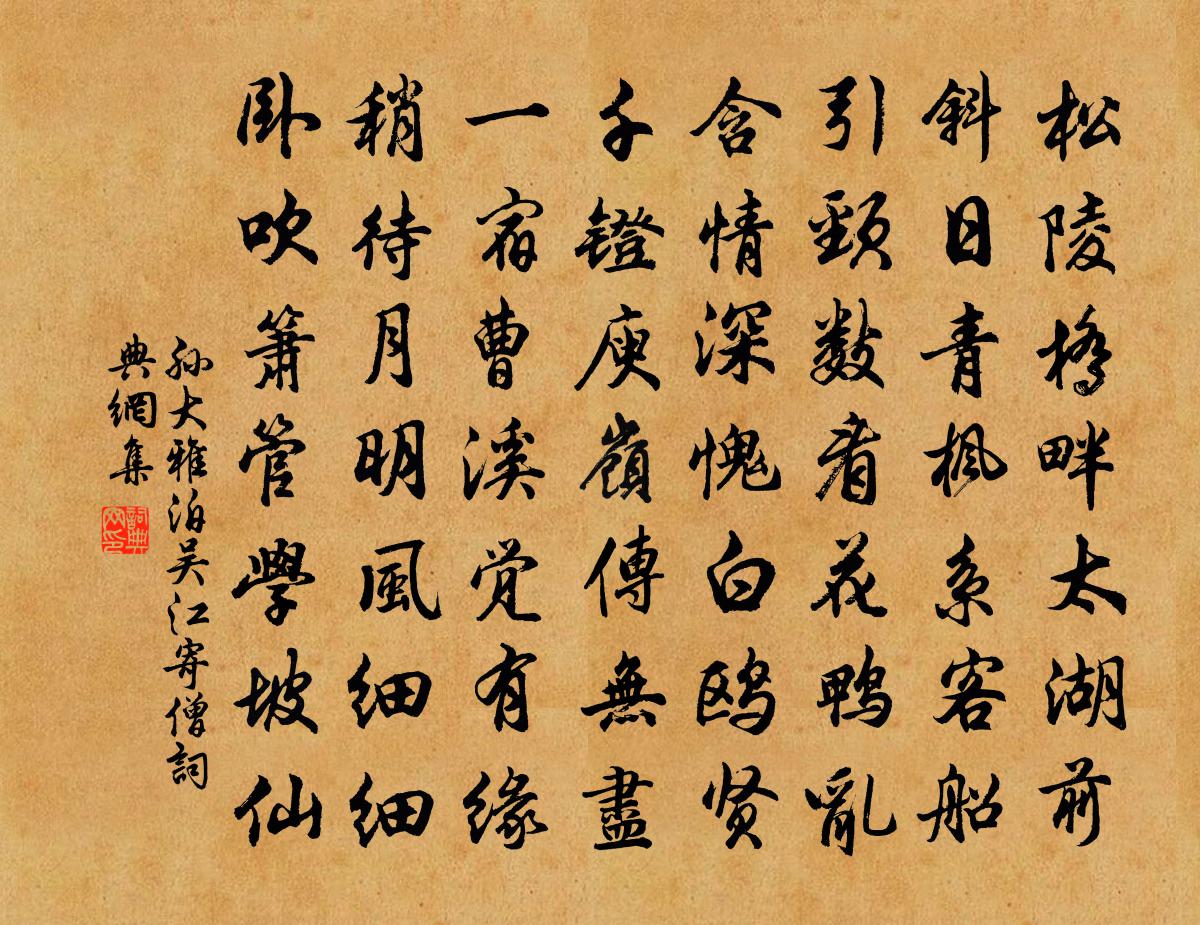 松陵橋畔太湖前
斜日青楓系客船
引頸數看花鴨亂
含情深愧白鷗贤
千镫庾嶺傳無盡
一宿曹溪觉有緣
稍待月明風细细
卧吹簫管學坡仙
孙大雅泊吴江寄僧詞
典網集
詞典
网印